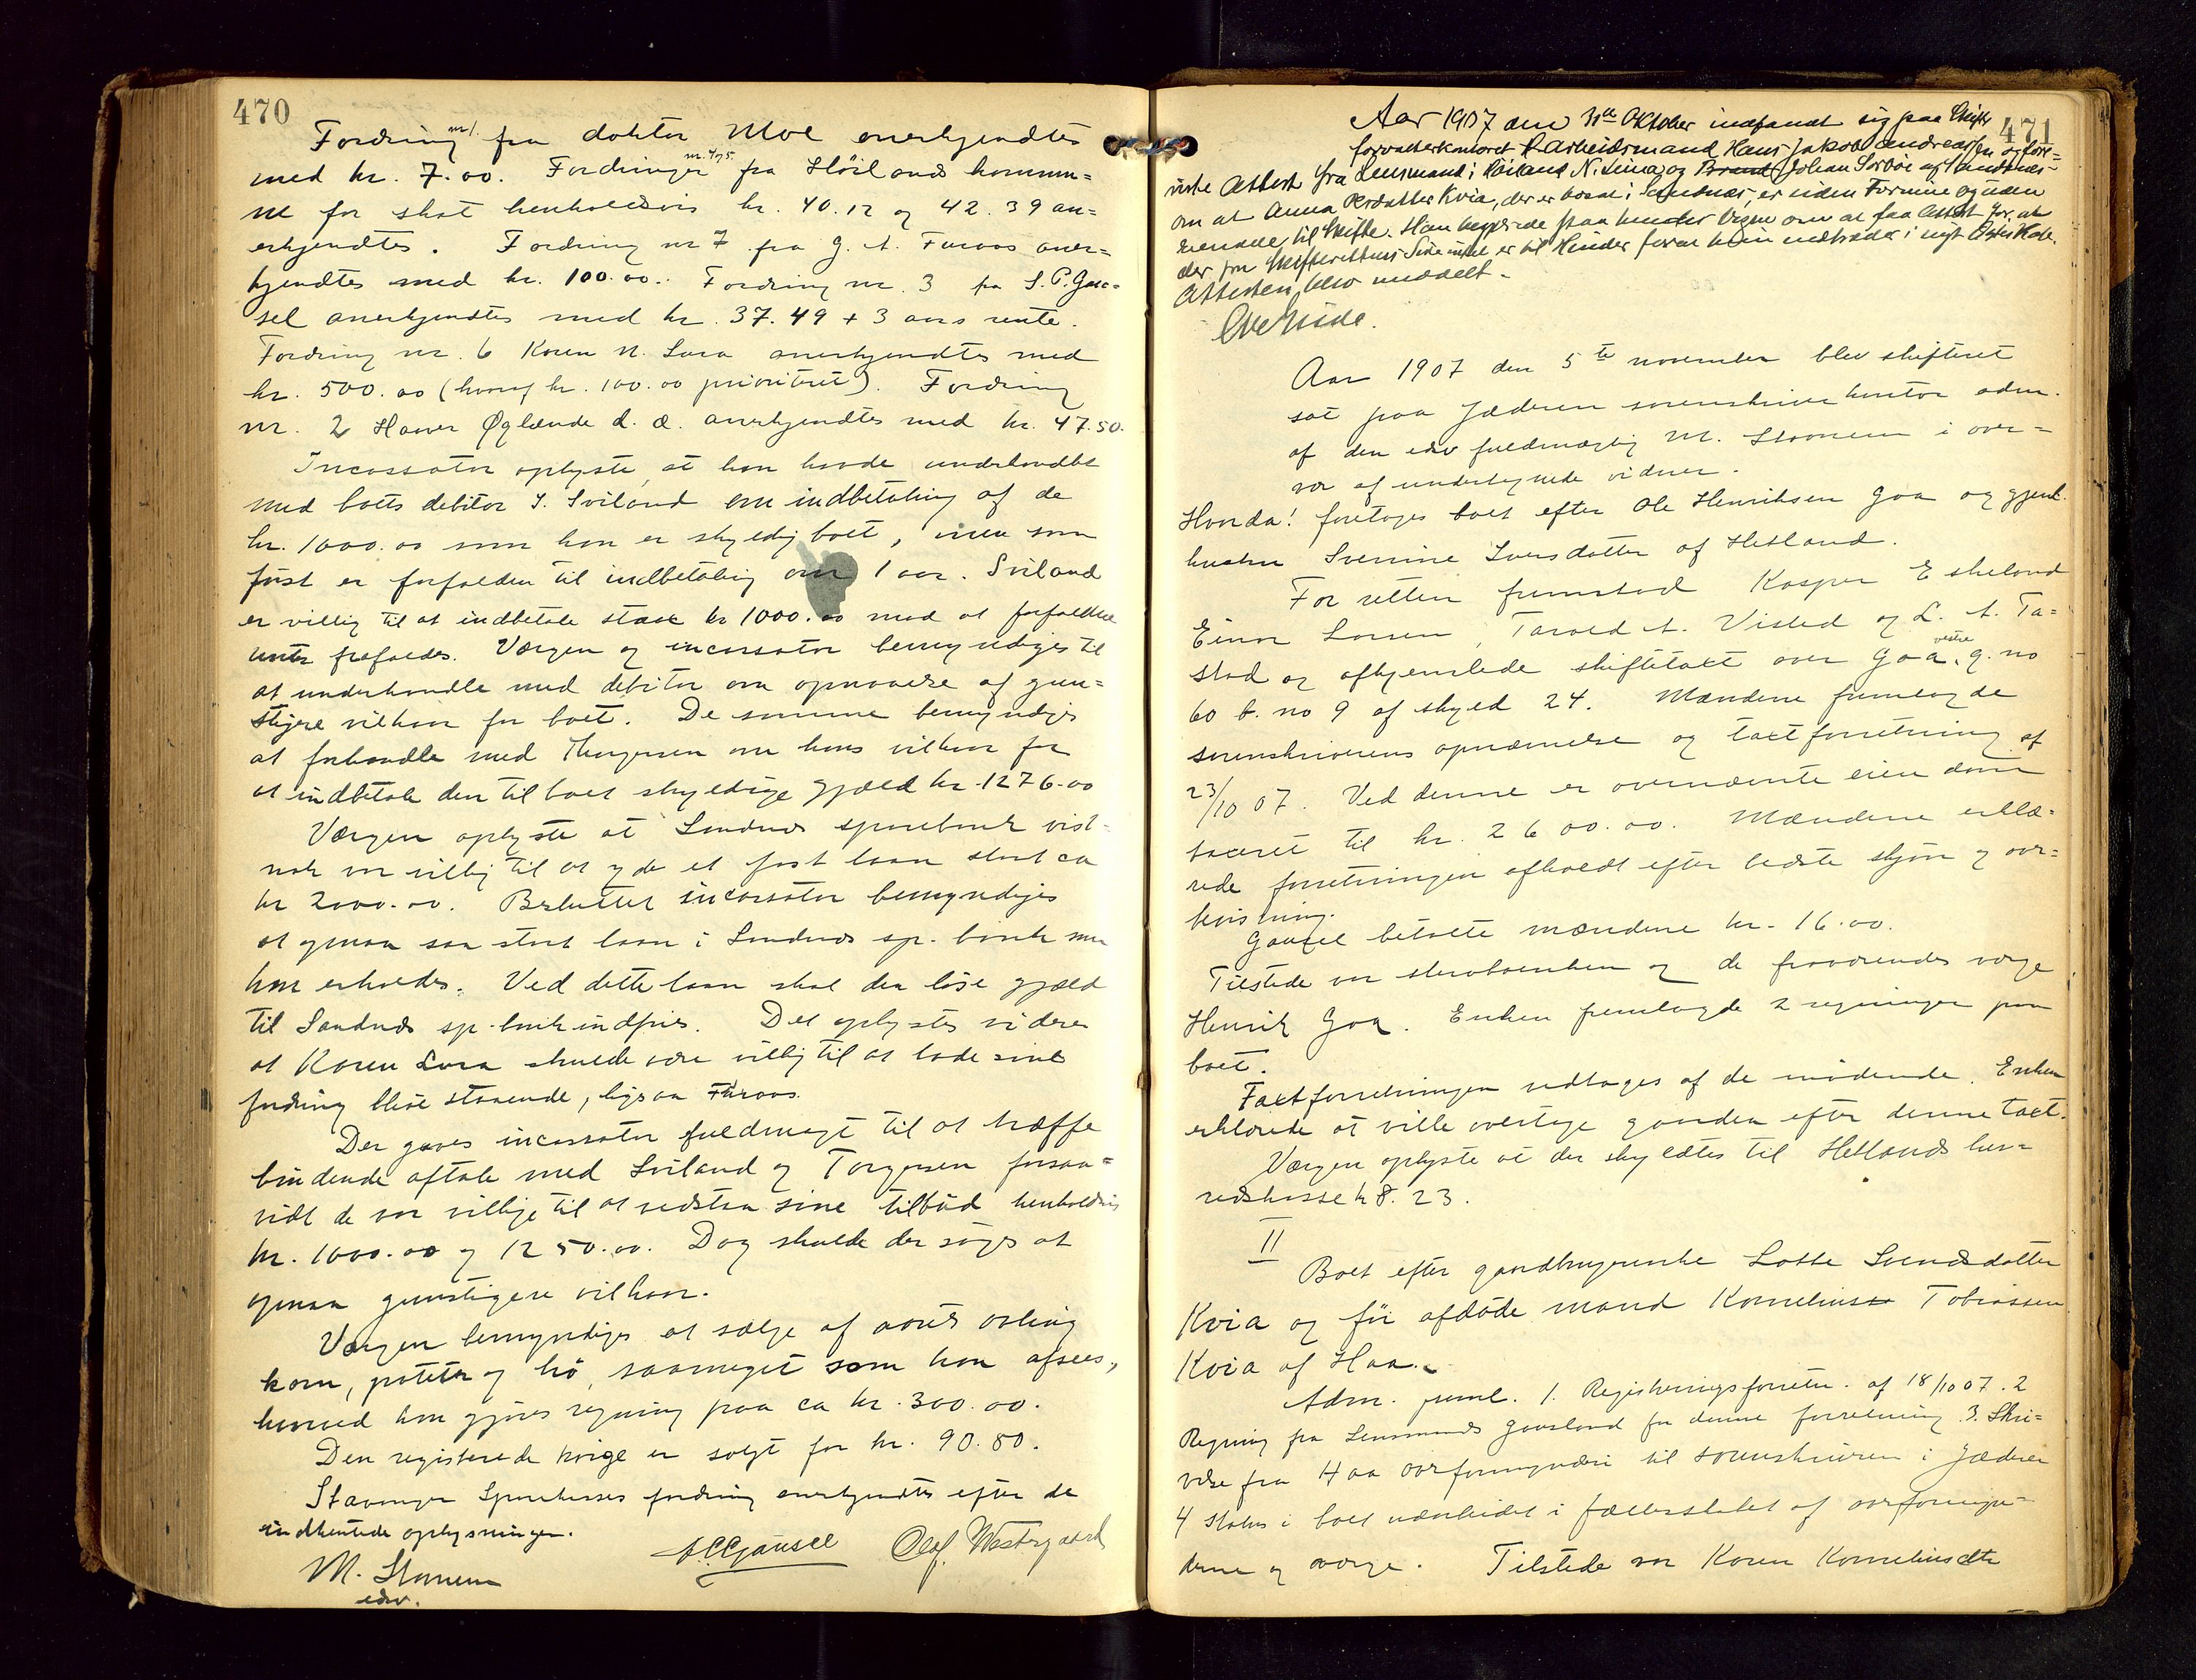 470
Fordring nr 1. fra doktor Moe anerkjendtes
med kr. 7.00. Fordringer nr. 4 og 5. fra Höilands kommu=
ne for skat henholdsvis kr. 40.12 og 42.39 an=
erkjendtes. Fordring nr 7 fra G. A. Furaas aner=
kjendtes med kr. 100.00. Fordring nr. 3 fra S. P. Gau=
sel anerkjendtes med kr. 37.49 + 3 aars rente.
Fordring nr. 6 Karen N. Lura anerkjendtes med
kr. 500.00 (hvoraf kr. 100.00 prioritet). Fordring
nr. 2 Haver Øglænde d. æ. anerkjendtes med kr. 47.50.
Incassator oplyste, at han havde underhandlet
med boets debitor S. Sviland om indbetaling af de
kr. 1000.00 som han er skyldig boet, men som
först er forfalden til indbetaling om 1 aar. Sviland
er villig til at indbetale strax kr 1000.00 mod at forfaldne
renter frafaldes. Værgen og incassator bemyndiges til
at underhandle med debitor om opnaaelse af gun=
stigere vilkaar for boet. De samme bemyndiges
at forhandle med Thorgersen om hans vilkaar for
at indbetale den til boet skyldige gjæld kr. 1276.00
Værgen oplyste at Sandnes sparebank vist=
nok var villig til at yde et fast laan stort ca
kr 2000.00. Besluttet incassator bemyndiges
at opnaa saa stort laan i Sandnes sp. bank som
kan erholdes. Ved dette laan skal den löse gjæld
til Sandnes sp. bank indfries. Det oplystes videre
at Karen Lura skulde være villig til at lade sine
fordring blive staaende, ligesaa Furaas.
Der gaves incassator fuldmagt til at træffe
bindende aftale med Sviland og Torgersen forsaa=
vidt de var villige til at vedstaa sine tilbud henholdsvis
kr. 1000.00 og 1250.00. Dog skulde der söges at
opnaa gunstigere vilkaar.
Værgen bemyndiges at sælge af aarets avling
korn, poteter og hö, saameget som kan afsees,
hvorved han gjöres regning paa ca kr. 300.00.
Den registrerede kvige er solgt for kr. 90.80.
Stavanger Sparekasses fordring anerkjendtes efter de
indhentede oplysninger.
M. Stornem S.P.Gausel Olaf Westergaard
edsv.
471
Aar 1907 den 31te Oktober indfandt sig paa Skifte
forvalterkontoret Arbeidsmand Hans Jakob Andreassen og fore=
viste Attest fra Lensmand i Höiland N. Lima og Brand Johan Sörböe af Sandnæs
om at Anna Kvia, der er bosat i Sandnæs, er uden Formue og uden
henseende til Skifte. Han begjærede paa hendes Vegne om at faa Attest for, at
der fra Skifterettens Side intet er til Hinder for at hun indtræder i nyt Ægteskab.
Attesten blev meddelt.
Aar 1907 den 5te november blev skifteret
sat paa Jæderen sorenskriverkontor adm.
af den edsv fuldmægtig M. Stornem i over=
vær af undertegnede vidner.
Hvorda! foretoges boet efter Ole Henriksen Goa og gjenl.
hustru Sverine Iversdatter af Hetland.
For retten fremstod Kasper Eskeland
Einar Larsen, Tarald A. Visted og L. A. Ta=
stad og afhjemlede skiftetaxt over Goa vestre g. no
60 b. no 9 af skyld 24. Mændene fremlagde
sorenskriverens opnævnelse og taxtforretning af
23/10 07. Ved denne er overnævnte eiendom
taxeret til kr. 2600.00. Mændene erklæ=
rede forretningen afholdt efter bedste skjön og over=
bevisning.
Gausel betalte mændene kr. 16.00.
Tilstede var stervboenken og de fraværendes værge
Henrik Goa. Enken fremlagde 2 regninger paa
boet.
Taxtforretningen vedtoges af de mödende. Enken
erklærede at ville overtage gaarden efter denne taxt.
Værgen oplyste at der skyldtes til Hetlands her=
redskasse k 8.23.
II
Boet efter gaardbrugerenke Lotte Svendsdatter
Kvia og för afdöde mand Kornelius Tobiassen
Kvia af Haa.
Adm. freml. 1. Registreringsforretn. af 18/10 07. 2
Regning fra Lensmand Gausland for denne forretning 3. Skri=
velse fra Haa overformynderi til sorenskriveren i Jæderen
4 Status i boet udarbeidet i fællesskabet af overformyn=
derne og værge. Tilstede var Karen Korneliusdtr